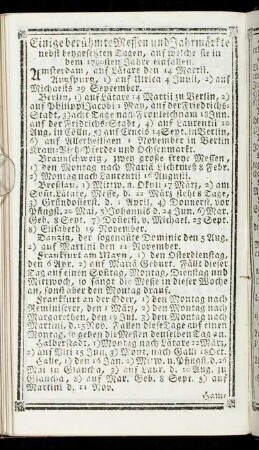 Einige berühmte Messen und Jahrmärkte
nebst beygesetzten Tagen, auf welche sie in
dem 1790sten Jahre einfallen.
Amsterdam, auf Lätare den 14 Martii.
Augspurg, 1) auf Ulrici 4 Junii, 2) auf
Michaelis 29 September.
Berlin, 1) auf Lätare 14 Martii zu Berlin, 2)
auf Philippi Jacobi 1 May, auf der Friedrichs-
Stadt, 3) acht Tage nach Fronleichnam
auf der Fridrichs-Stadt, 4) auf Laurentii 10
Aug. in Cölln, 5) auf Crucis 14 Sept. in Berlin,
6) auf Allerheiligen 1 November in Berlin
Kram-Vieh-Pferde und Ochsenmarkt.
Braunschweig, zwey große freye Messen,
1) den Montag nach Mariä Lichtmeß 8 Febr.
2) Montag nach Laurentii 16 August.
Breslau, 1) Mitw. n. Okuli 17 März, 2) am
Sont. Lätare, Messe, d. 22 März steht 8 Tage,
3) Gründonerst. d. 1 April, 4) Donnerst. vor
Pfingst. 20 May, 5) Johannis d. 24 Jun. 6) Mar.
Geb. 8 Sept. 7) Donerst. v. Michael. 23 Sept.
8) Elisabeth 19 November.
Danzig, der sogenante Dominic den 5 Aug.
2) auf Martini den 11 November.
Frankfurt am Mayn, 1) den Osterdienstag,
den 6 Apr. 2) auf Mariä Geburt. Fällt dieser
Tag auf einen Sontag, Montag, Dienstag und
Mittwoch, so fangt die Messe in dieser Woche
an, sonst aber den Montag drauf.
Frankfurt an der Oder, 1) den Montag nach
Reminiscere, den 1 März, 2) den Montag nach
Margarethen, den 19 Jul. 3) den Montag nach
Martini, d. 15 Nov. Fallen diese Tage auf einen
Montag, so gehen die Messen denselben Tag an.
Halberstadt, 1) Montag nach Lätare 22 März,
2) auf Viti 15 Juni, 3) Mont. nach Galli 18 Oct.
Halle, 1) den 16 Jan. 2) Mitw. n. Pfingst. d. 26
Mai zu Glaucha, 3) auf Laur. d. 10 Aug. zu
Glaucha, 8) auf Mar. Geb. 8 Sept. 5) auf
Martini d. 11 Nov.
Ham-